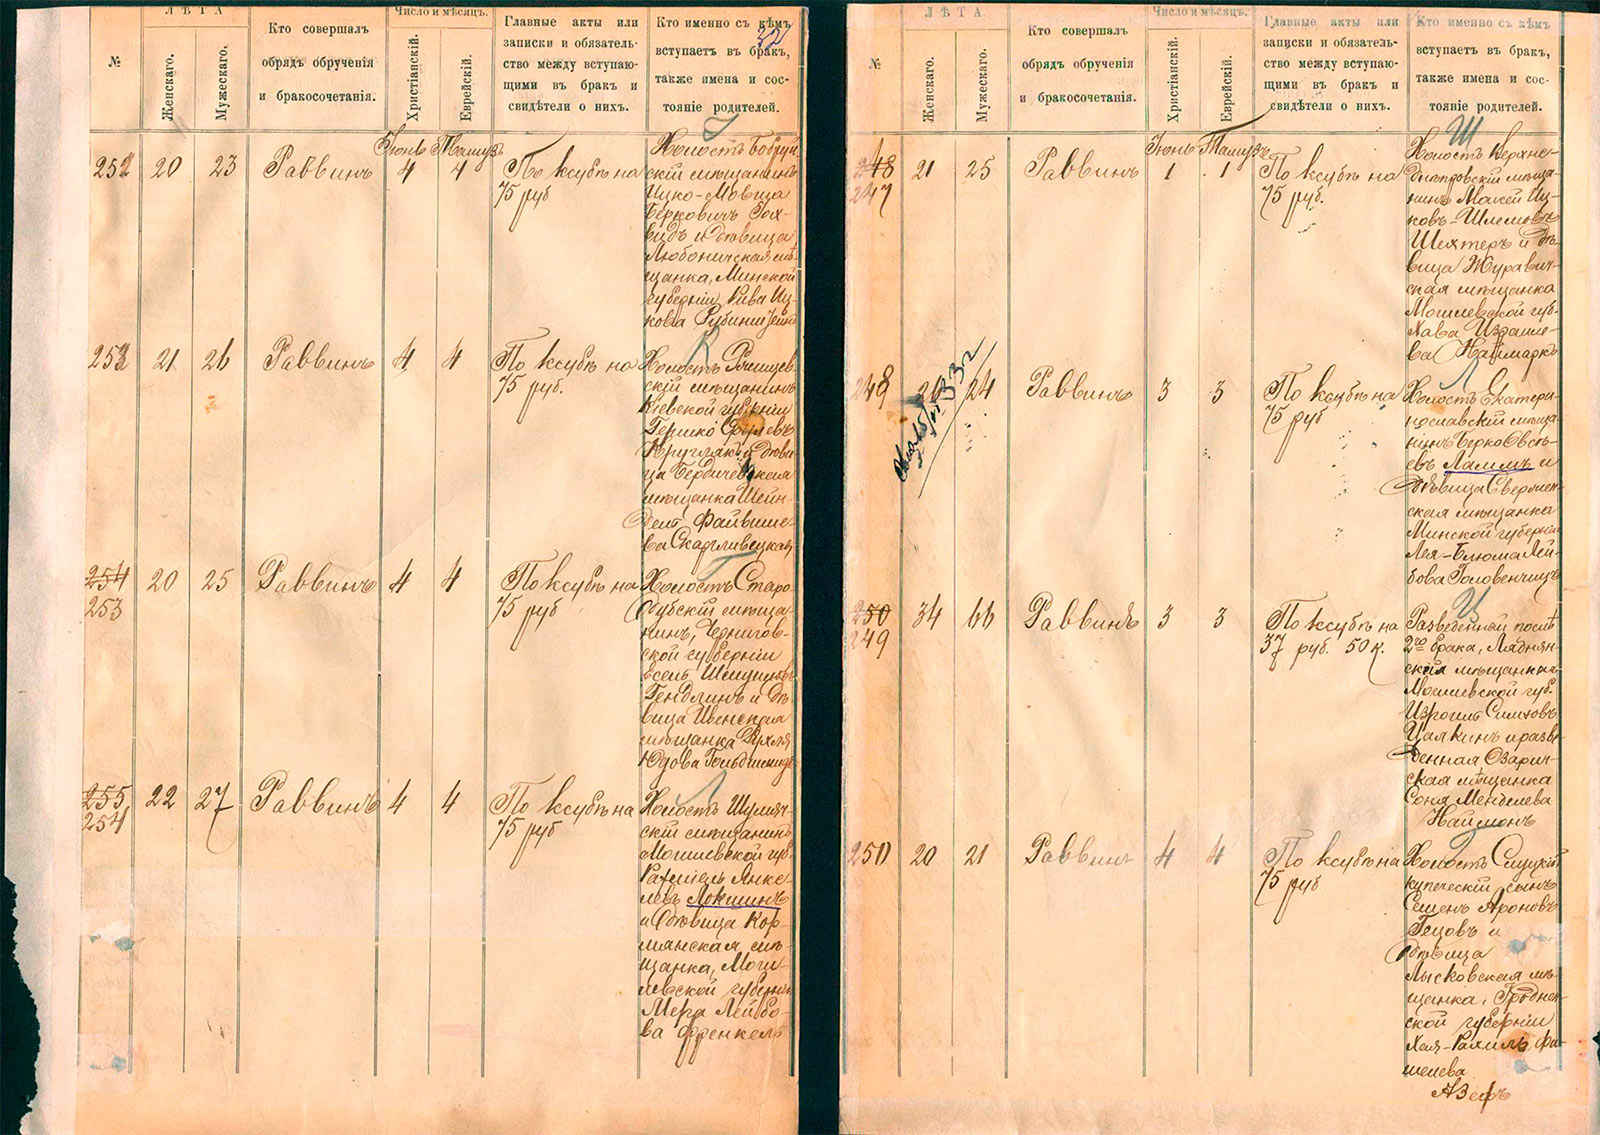 №
ЛѢТА
Женскаго.
Мужескаго.
Кто совершалъ
обрядъ обрученія
и бракосочетанія.
Число и мѣсяцъ.
Христіанскій.
Еврейскій.
Главные акты или
записки и обязатель-
ство между вступаю-
щими въ бракъ и
свидѣтели о нихъ.
Кто именно съ кѣмъ
вступаетъ въ бракъ,
также имена и сос-
тояніе родителей.
Іюнь Тамузъ
252 20 23 Раввинъ 4 4
По ксубѣ на
75 руб
Холостъ Бобруй-
скій мѣщанинъ
Ицко-Мовша
Берковичъ
и дѣвица
Любоничская мѣ-
щанка, Минской
губерніи Рива Иц-
кова Рубинштейнъ
К
253 21 26 Раввинъ 4 4
По ксубѣ на
75 руб.
Холостъ
скій мѣщанинъ
Кіевской губерніи
Гершко Срулевъ
Круглякъ и дѣви-
ца Бердичевская
мѣщанка Шейн-
дель Файвише-
ва Скарливецкая
Г
254
253
20 25 Раввинъ 4 4
По ксубѣ на
75 руб
Холостъ Старо-
дубскій мѣща-
нинъ, Чернигов-
ской губерніи
Гендлинъ и дѣ-
вица Ивенская
мѣщанка Рухля
Юдова Гольдшмидъ
Л
255
254
22 27 Раввинъ 4 4
По ксубѣ на
75 руб
Холостъ Шумяч-
скій мѣщанинъ
Могилевской губ.
Рахміель Янке-
левъ Локшинъ
и дѣвица Кор-
мянская мѣ-
щанка, Моги-
левской губерніи
Мера Лейбо-
ва Френкель
№
ЛѢТА
Женскаго.
Мужескаго.
Кто совершалъ
обрядъ обрученія
и бракосочетанія.
Число и мѣсяцъ.
Христіанскій.
Еврейскій.
Главные акты или
записки и обязатель-
ство между вступаю-
щими въ бракъ и
свидѣтели о нихъ.
Кто именно съ кѣмъ
вступаетъ въ бракъ,
также имена и сос-
тояніе родителей.
Ш
Іюнь Тамузъ
248
247
21 25 Раввинъ 1 1
По ксубѣ на
75 руб.
Холостъ Верхне-
днѣпровскій мѣща-
нинъ Мовсей Иц-
ковъ-Шлемовъ
Шехтеръ и дѣ-
вица Журавич-
ская мѣщанка
Могилевской губ.
Хава Израиле-
ва Наймаркъ
Л
248 24 Раввинъ 3 3
По ксубѣ на
75 руб
Холостъ Екатери-
нославскій мѣща-
нинъ Берко Овсѣ-
евъ Ламмъ и
дѣвица Свержен-
ская мѣщанка
Минской губерніи
Лея-Блюма Лей-
бова Головенчицъ
Ц
250
249
34 66 Раввинъ 3 3
По ксубѣ на
37 руб. 50 к.
Разведенный послѣ
2го брака, Ляднян-
скій мѣщанинъ
Могилевской губ.
Изроиль Симховъ
Цалкинъ и разве-
денная Озарич-
ская мѣщанка
Соня Менделева
Найманъ
Г
250 20 21 Раввинъ 4 4
По ксубѣ на
75 руб
Холостъ Слуцкій
купеческій сынъ
Семенъ Ароновъ
Гецовъ и
дѣвица
Лысковская мѣ-
щанка, Гроднен-
ской губерніи
Хая-Рахиль Фи-
шелева
Азефъ